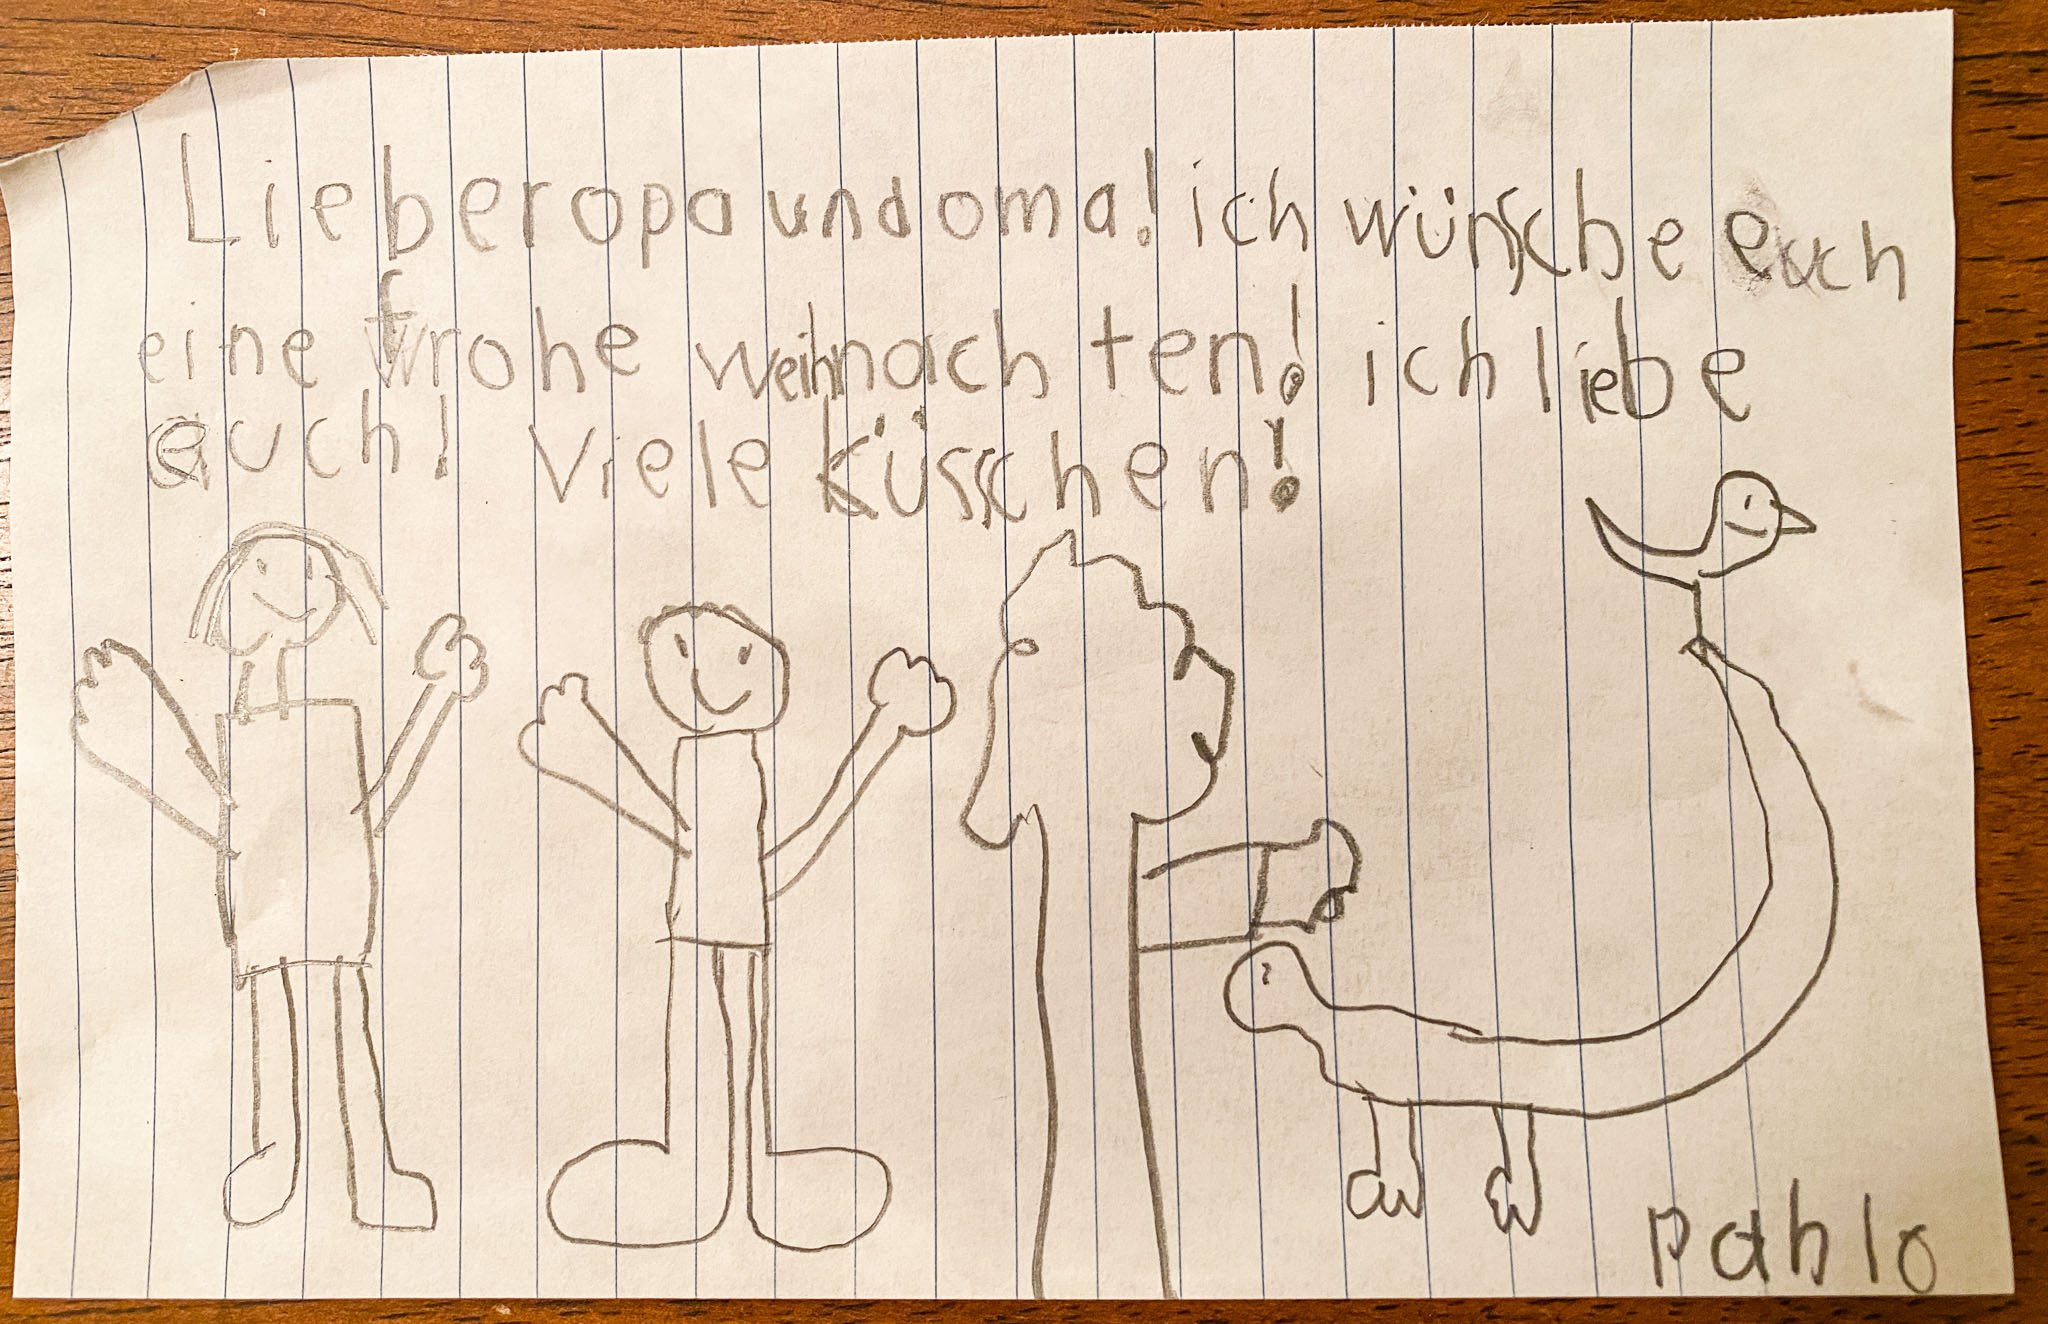 Lieber opa und oma! ich wünsche euch
eine frohe weihnachten! ich liebe
euch! Viele küsschen!
pablo